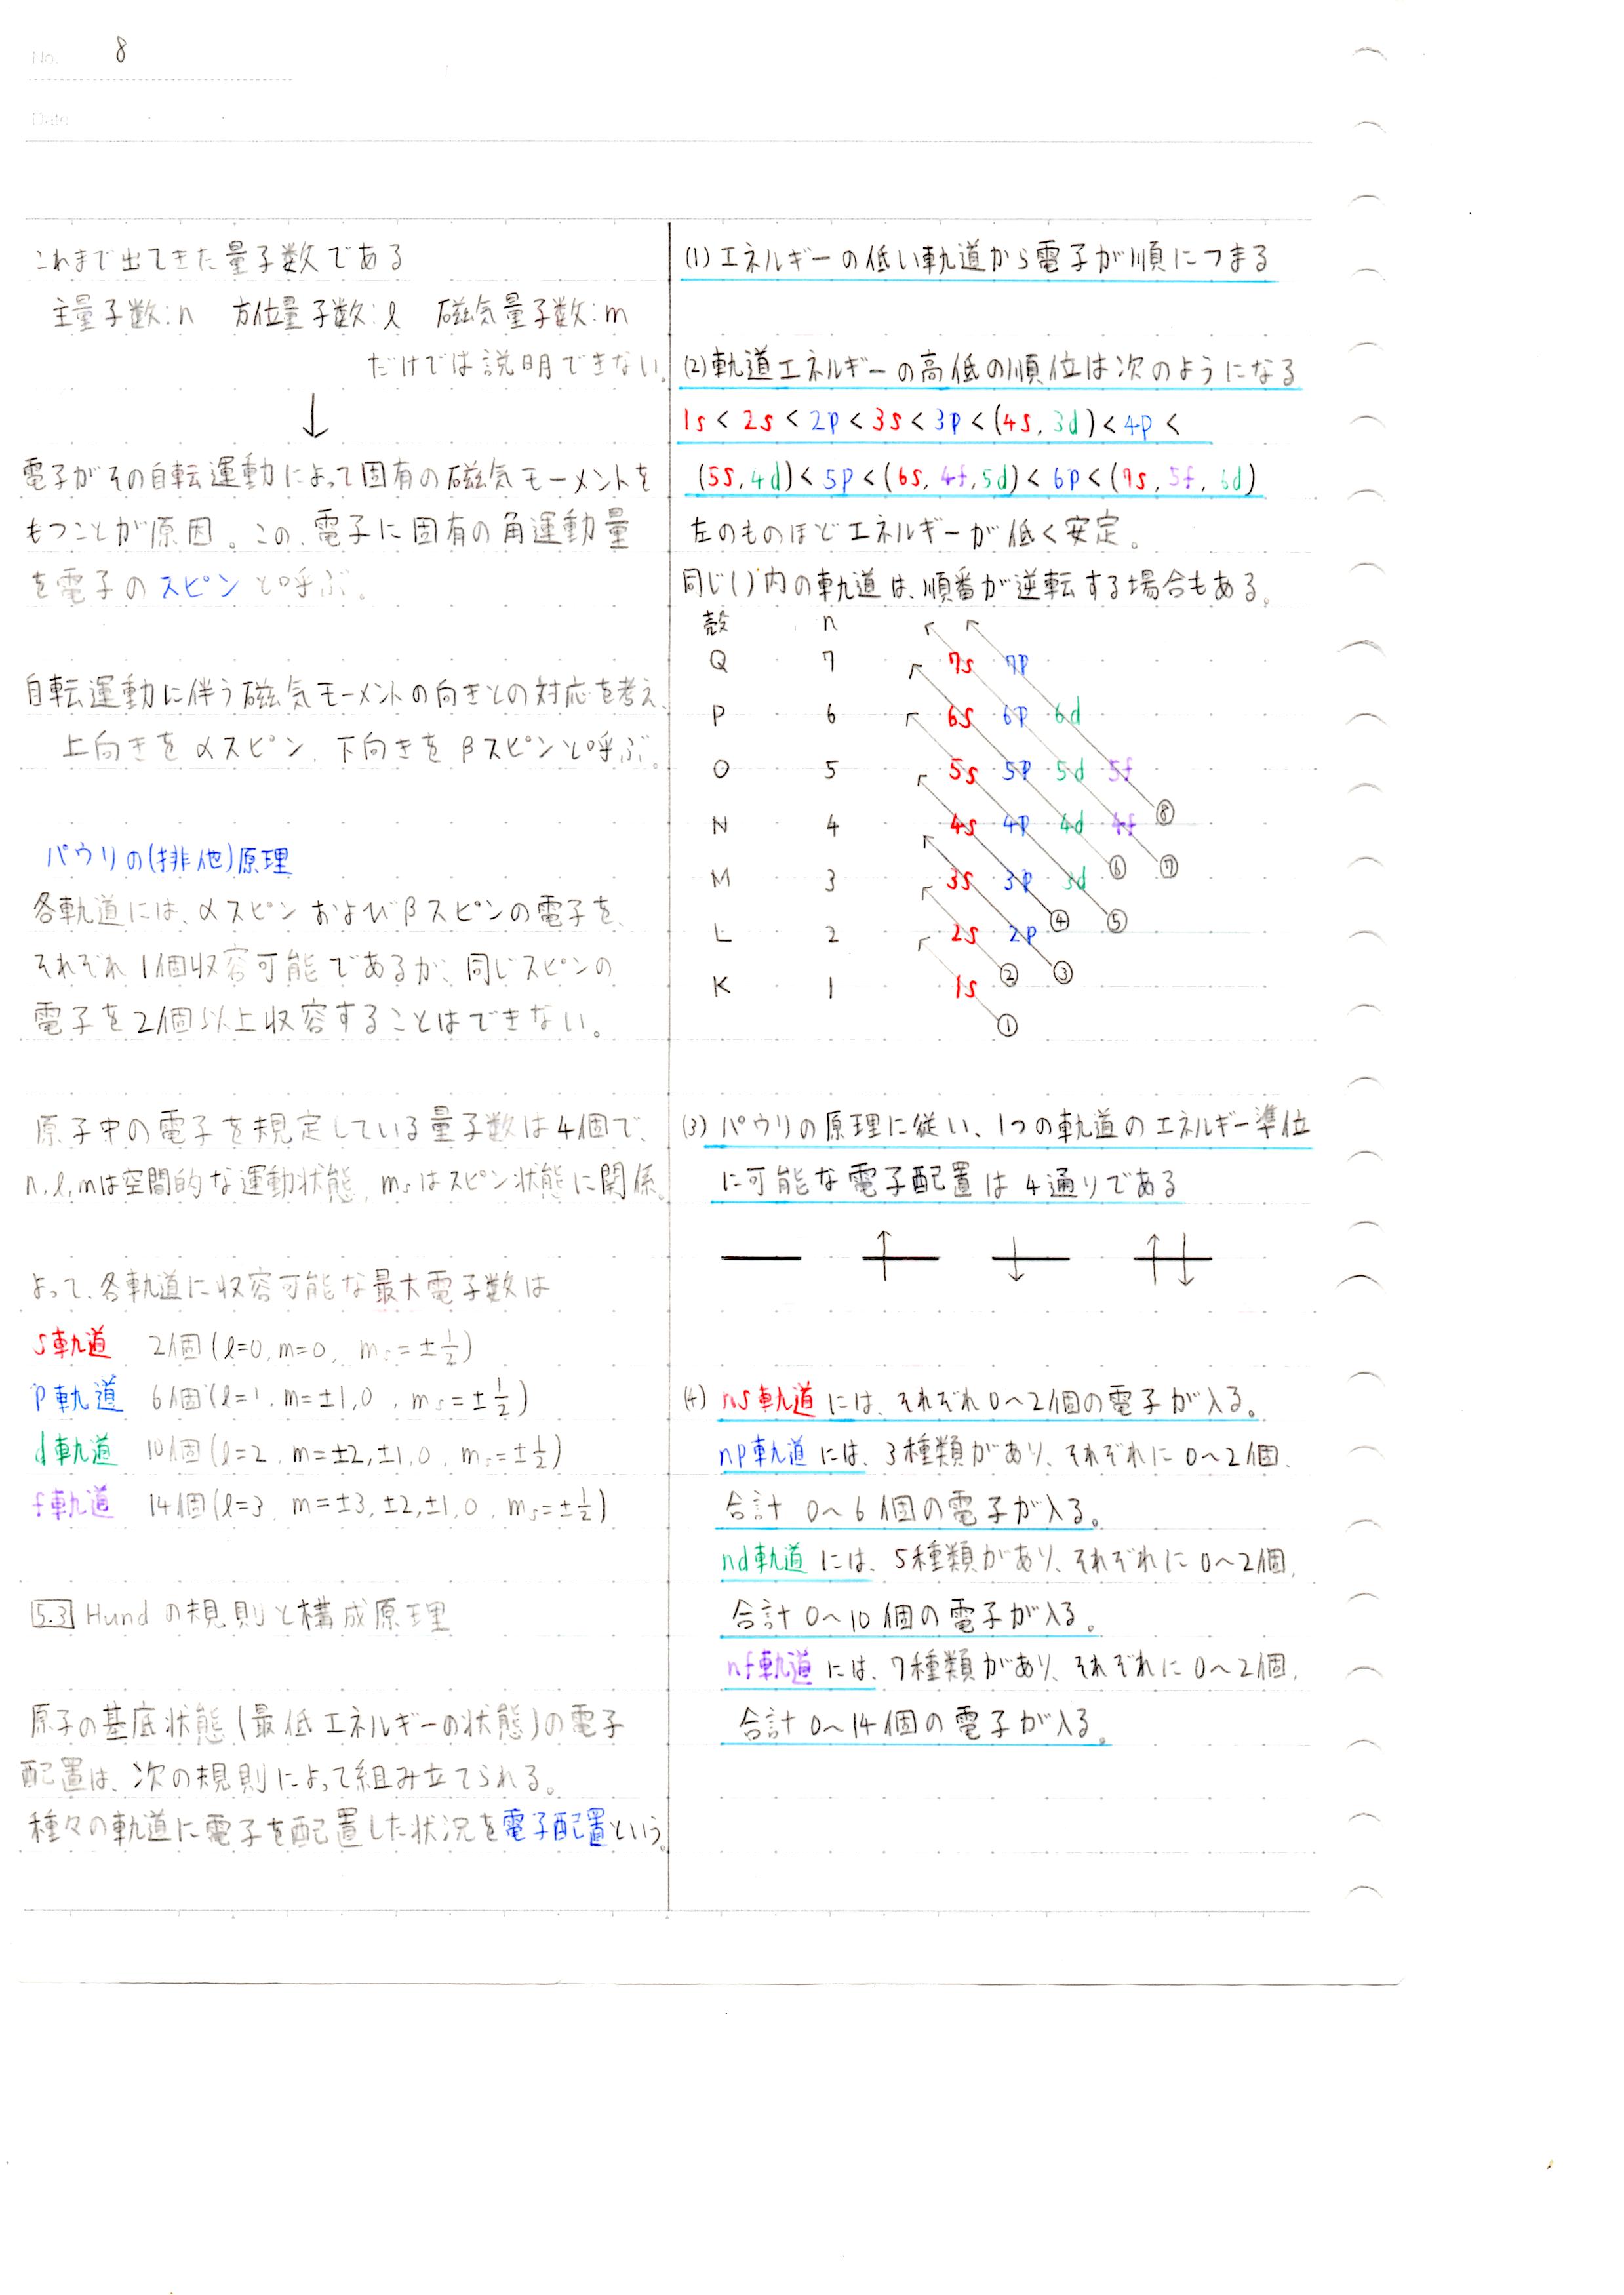 No. 8
Date
これまで出てきた量子数である
主量子数:n 方位量子数:l 磁気量子数:m
だけでは説明できない。
↓
電子がその自転運動によって固有の磁気モーメントを
もつことが原因。この、電子に固有の角運動量
を電子のスピンと呼ぶ。
自転運動に伴う磁気モーメントの向きとの対応を考え、
上向きをαスピン、下向きをβスピンと呼ぶ。
パウリの(排他)原理
各軌道には、αスピンおよびβスピンの電子を、
それぞれ1個収容可能であるが、同じスピンの
電子を2個以上収容することはできない。
原子中の電子を規定している量子数は4個で、
n,l,mは空間的な運動状態、msはスピン状態に関係。
よって、各軌道に収容可能な最大電子数は
s軌道 2個(l=0, m=0, ms=±1/2)
p軌道 6個(l=1, m=±1,0, ms=±1/2)
d軌道 10個(l=2, m=±2,±1,0, ms=±1/2)
f軌道 14個(l=3, m=±3,±2,±1,0, ms=±1/2)
5.3 Hundの規則と構成原理
原子の基底状態(最低エネルギーの状態)の電子
配置は、次の規則によって組み立てられる。
種々の軌道に電子を配置した状況を電子配置という。
(1) エネルギーの低い軌道から電子が順につまる
(2) 軌道エネルギーの高低の順位は次のようになる
1s < 2s < 2p < 3s < 3p < (4s, 3d) < 4p <
(5s, 4d) < 5p < (6s, 4f, 5d) < 6p < (7s, 5f, 6d)
左のものほどエネルギーが低く安定。
同じ( )内の軌道は、順番が逆転する場合もある。
殻 n
Q 7 7s 7p
P 6 6s 6p 6d
O 5 5s 5p 5d 5f
N 4 4s 4p 4d 4f ⑧
M 3 3s 3p 3d ⑥ ⑦
L 2 2s 2p ④ ⑤
K 1 1s ② ③
①
(3) パウリの原理に従い、1つの軌道のエネルギー準位
に可能な電子配置は4通りである
↑ ↓ ↑↓
(4) ns軌道には、それぞれ0~2個の電子が入る。
np軌道には、3種類があり、それぞれに0~2個、
合計 0~6個の電子が入る。
nd軌道には、5種類があり、それぞれに0~2個、
合計 0~10個の電子が入る。
nf軌道には、7種類があり、それぞれに0~2個、
合計 0~14個の電子が入る。